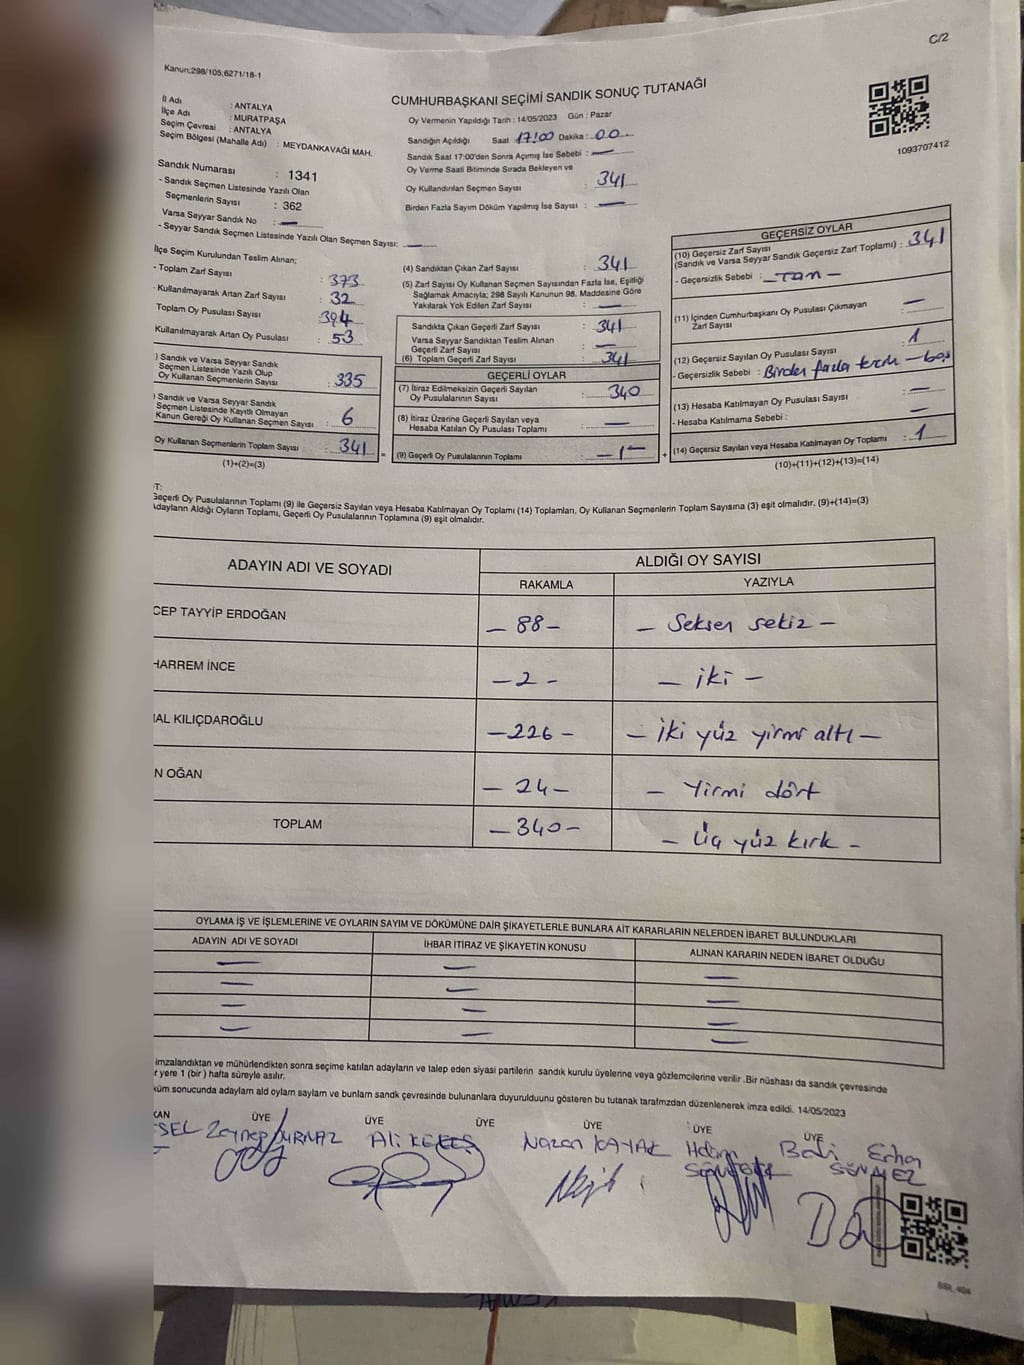 C/2
Kanun;298/105;6271/18-1
1093707412
CUMHURBAŞKANI SEÇİMİ SANDIK SONUÇ TUTANAĞI
İl Adı : ANTALYA
İlçe Adı : MURATPAŞA
Seçim Çevresi : ANTALYA
Seçim Bölgesi (Mahalle Adı) : MEYDANKAVAĞI MAH.
Sandık Numarası : 1341
- Sandık Seçmen Listesinde Yazılı Olan
Seçmenlerin Sayısı : 362
Varsa Seyyar Sandık No : —
- Seyyar Sandık Seçmen Listesinde Yazılı Olan Seçmen Sayısı: —
Oy Vermenin Yapıldığı Tarih : 14/05/2023 Gün : Pazar
Sandığın Açıldığı Saat 17:00 Dakika : 00
Sandık Saat 17:00'den Sonra Açımış İse Sebebi : —
Oy Verme Saati Bitiminde Sırada Bekleyen ve
Oy Kullandırılan Seçmen Sayısı : 341
Birden Fazla Sayım Döküm Yapılmış İse Sayısı : —
İlçe Seçim Kurulundan Teslim Alınan;
- Toplam Zarf Sayısı : 373
- Kullanılmayarak Artan Zarf Sayısı : 32
Toplam Oy Pusulası Sayısı : 394
Kullanılmayarak Artan Oy Pusulası : 53
) Sandık ve Varsa Seyyar Sandık
Seçmen Listesinde Yazılı Olup
Oy Kullanan Seçmenlerin Sayısı : 335
) Sandık ve Varsa Seyyar Sandık
Seçmen Listesinde Kayıtlı Olmayan
Kanun Gereği Oy Kullanan Seçmen Sayısı : 6
Oy Kullanan Seçmenlerin Toplam Sayısı : 341
(1)+(2)=(3)
(4) Sandıktan Çıkan Zarf Sayısı : 341
(5) Zarf Sayısı Oy Kullanan Seçmen Sayısından Fazla İse, Eşitliği
Sağlamak Amacıyla; 298 Sayılı Kanunun 98. Maddesine Göre
Yakılarak Yok Edilen Zarf Sayısı : —
Sandıkta Çıkan Geçerli Zarf Sayısı : 341
Varsa Seyyar Sandıktan Teslim Alınan
Geçerli Zarf Sayısı : —
(6) Toplam Geçerli Zarf Sayısı : 341
GEÇERLİ OYLAR
(7) İtiraz Edilmeksizin Geçerli Sayılan
Oy Pusulalarının Sayısı : 340
(8) İtiraz Üzerine Geçerli Sayılan veya
Hesaba Katılan Oy Pusulası Toplamı : —
(9) Geçerli Oy Pusulalarının Toplamı : — 1 —
GEÇERSİZ OYLAR
(10) Geçersiz Zarf Sayısı
(Sandık ve Varsa Seyyar Sandık Geçersiz Zarf Toplamı) : 341
- Geçersizlik Sebebi : — TAM —
(11) İçinden Cumhurbaşkanı Oy Pusulası Çıkmayan
Zarf Sayısı : —
(12) Geçersiz Sayılan Oy Pusulası Sayısı : 1
- Geçersizlik Sebebi : Birden fazla tercih — boş
(13) Hesaba Katılmayan Oy Pusulası Sayısı : —
- Hesaba Katılmama Sebebi : —
(14) Geçersiz Sayılan veya Hesaba Katılmayan Oy Toplamı : 1
(10)+(11)+(12)+(13)=(14)
T:
Geçerli Oy Pusulalarının Toplamı (9) ile Geçersiz Sayılan veya Hesaba Katılmayan Oy Toplamı (14) Toplamları, Oy Kullanan Seçmenlerin Toplam Sayısına (3) eşit olmalıdır. (9)+(14)=(3)
dayların Aldığı Oyların Toplamı, Geçerli Oy Pusulalarının Toplamına (9) eşit olmalıdır.
ADAYIN ADI VE SOYADI ALDIĞI OY SAYISI
RAKAMLA YAZIYLA
CEP TAYYİP ERDOĞAN — 88 — — Seksen sekiz —
HARREM İNCE — 2 — — iki —
AL KILIÇDAROĞLU — 226 — — iki yüz yirmi altı —
N OĞAN — 24 — — Yirmi dört
TOPLAM — 340 — — Üç yüz kırk —
OYLAMA İŞ VE İŞLEMLERİNE VE OYLARIN SAYIM VE DÖKÜMÜNE DAİR ŞİKAYETLERLE BUNLARA AİT KARARLARIN NELERDEN İBARET BULUNDUKLARI
ADAYIN ADI VE SOYADI İHBAR İTİRAZ VE ŞİKAYETİN KONUSU ALINAN KARARIN NEDEN İBARET OLDUĞU
— — —
— — —
— — —
— — —
imzalandıktan ve mühürlendikten sonra seçime katılan adayların ve talep eden siyasi partilerin sandık kurulu üyelerine veya gözlemcilerine verilir .Bir nüshası da sandık çevresinde
r yere 1 (bir ) hafta süreyle asılır.
küm sonucunda adayların ald oyların sayların ve bunların sandk çevresinde bulunanlara duyurulduunu gösteren bu tutanak tarafmzdan düzenlenerek imza edildi. 14/05/2023
KAN ÜYE ÜYE ÜYE ÜYE ÜYE ÜYE
SEL Zeynep DURNAZ Ali KELEŞ Nazan KAYAK Bedi Erhan
SÖNMEZ